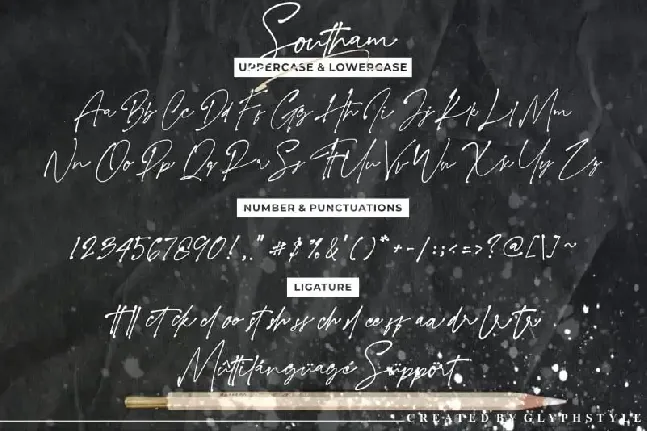 Southam
UPPERCASE & LOWERCASE
Aa Bb Cc Dd Ff Gg Hh Ii Jj Kk Ll Mm
Nn Oo Pp Qq Rr Ss Tt Uu Vv Ww Xx Yy Zz
NUMBER & PUNCTUATIONS
1234567890!,."#$%&'()*+-/:;<=>?@[\]~
LIGATURE
tt ll ct ck cl oo st sh ss ch sl ee
Múltilángüagé Süppört
CREATED BY GLYPHSTYLE